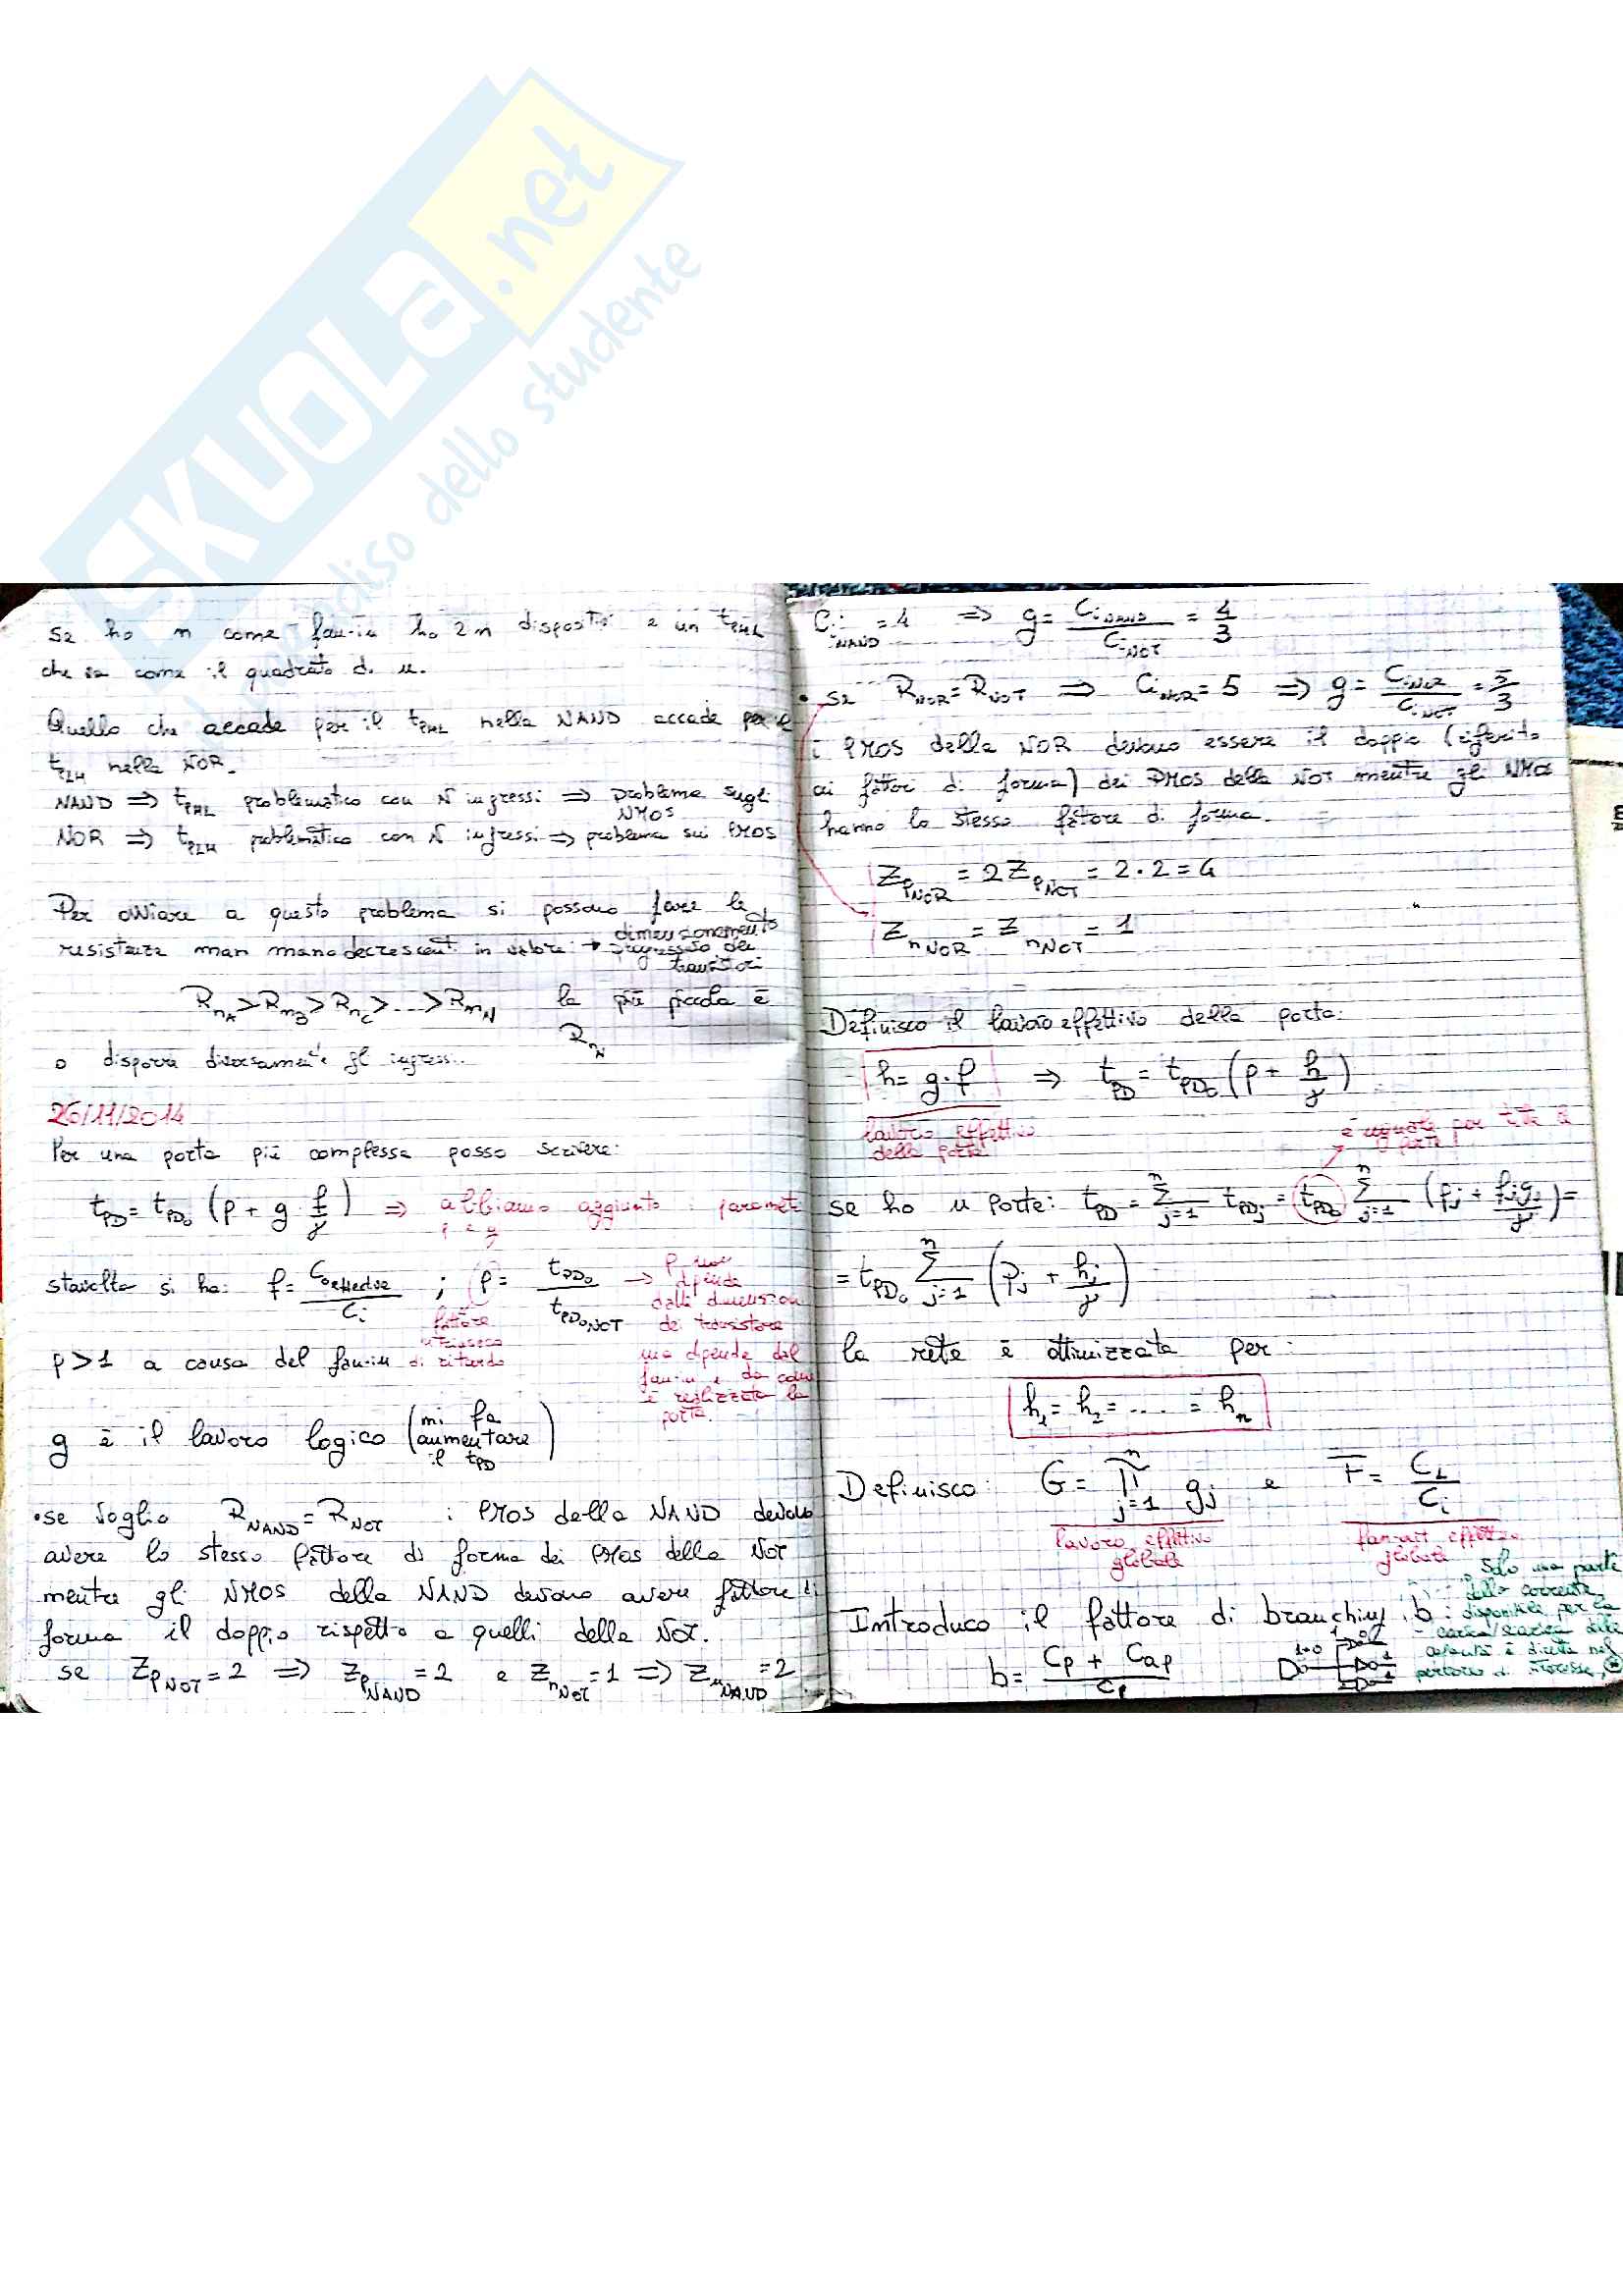 SKUOLA.net
dello studente
se ho n come fan-in ho 2n dispositivi e un tPHL
che va come il quadrato di n.
Quello che accade per il tPHL nella NAND accade per il
tPLH nella NOR.
NAND ⇒ tPHL problematico con N ingressi ⇒ problema sugli NMOS
NOR ⇒ tPLH problematico con N ingressi ⇒ problema sui PMOS
Per ovviare a questo problema si possono fare le
resistenze man mano decrescenti in valore: → dimensionamento progressivo dei transistori
RnA > RnB > RnC > ... > RnN la più piccola è
RnN
o disporre diversamente gl ingressi.
26/11/2014
Per una porta più complessa posso scrivere:
tPD = tPD0 (p + g f/γ) ⇒ abbiamo aggiunto i parametri
p e g
stavolta si ha: f = / Ci ; p = tPD0 / tPD0NOT → p non dipende dalle dimensioni dei transistore ma dipende dal fan-in e da come è realizzata la porta.
fattore intrinseco di ritardo
p > 1 a causa del fan-in
g è il lavoro logico (mi fa aumentare il tPD)
• se voglio RNAND = RNOT i PMOS della NAND devono
avere lo stesso fattore di forma dei PMOS della NOT
mentre gli NMOS della NAND devono avere fattore di
forma il doppio rispetto a quelli della NOT.
se ZpNOT = 2 ⇒ ZpNAND = 2 e ZnNOT = 1 ⇒ ZnNAND = 2
CiNAND = 4 ⇒ g = CiNAND / CiNOT = 4/3
• se RNOR = RNOT ⇒ CiNOR = 5 ⇒ g = CiNOR / CiNOT = 5/3
i PMOS della NOR devono essere il doppio (riferito
ai fattori di forma) dei PMOS della NOT mentre gli NMOS
hanno lo stesso fattore di forma.
ZpNOR = 2 ZpNOT = 2 · 2 = 4
ZnNOR = ZnNOT = 1
Definisco il lavoro effettivo della porta:
h = g · f ⇒ tPD = tPD0 (p + h/γ)
lavoro effettivo della porta
è uguale per tutte le porte
se ho n porte: tPD = Σ(j=1..n) tPDj = tPD0 Σ(j=1..n) (pj + fj gj/γ) =
= tPD0 Σ(j=1..n) (pj + hj/γ)
la rete è ottimizzata per:
h1 = h2 = .... = hn
Definisco: G = Π(j=1..n) gj e F = CL / Ci
lavoro effettivo globale
fan-out effettivo globale
Introduco il fattore di branching b:
b = (Cp + Cap) / Cp
Solo una parte
della corrente
disponibile per la
carica/scarica delle